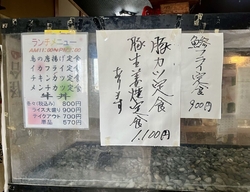 ランチメニュー
鳥の唐揚げ定食
イカフライ定食
チキンカツ定食
メンチカツ定食
牛丼
並(税込み) 800円
ライス大盛り 900円
テイクアウト 700円
単品 570円
豚カツ定食
豚生姜焼定食
1,100円
あります
鯵フライ定食
900円